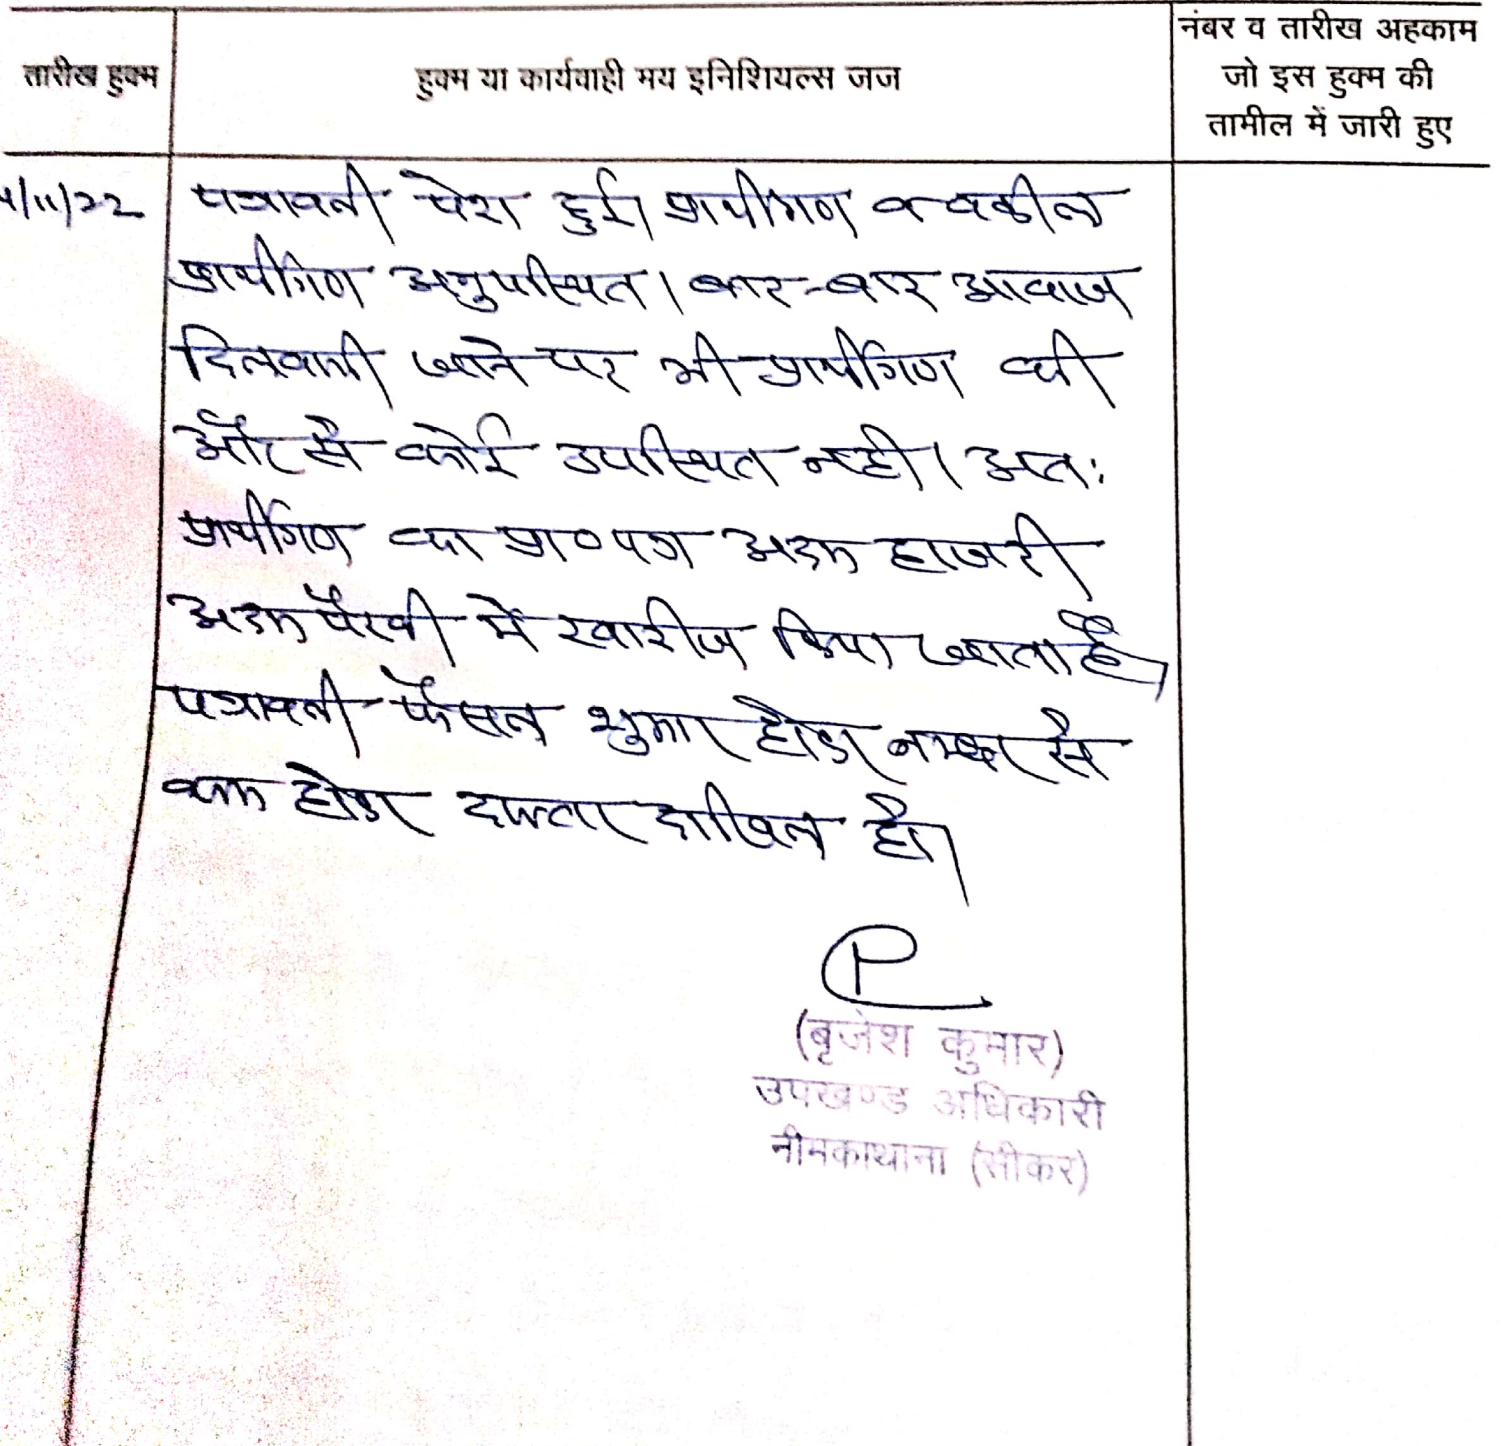 तारीख हुक्म
हुक्म या कार्यवाही मय इनिशियल्स जज
नंबर व तारीख अहकाम
जो इस हुक्म की
तामील में जारी हुए
4/11/22
पत्रावली पेश हुई। प्रार्थीगण व वकील
प्रार्थीगण अनुपस्थित। बार-बार आवाज
दिलवायी जाने पर भी प्रार्थीगण की
ओर से कोई उपस्थित नही। अतः
प्रार्थीगण का प्रा०पत्र अदम हाजरी
अदम पैरवी में खारीज किया जाता है।
पत्रावली फैसल शुमार होकर नम्बर से
कम होकर दफ्तर दाखिल हो।
(बृजेश कुमार)
उपखण्ड अधिकारी
नीमकाथाना (सीकर)